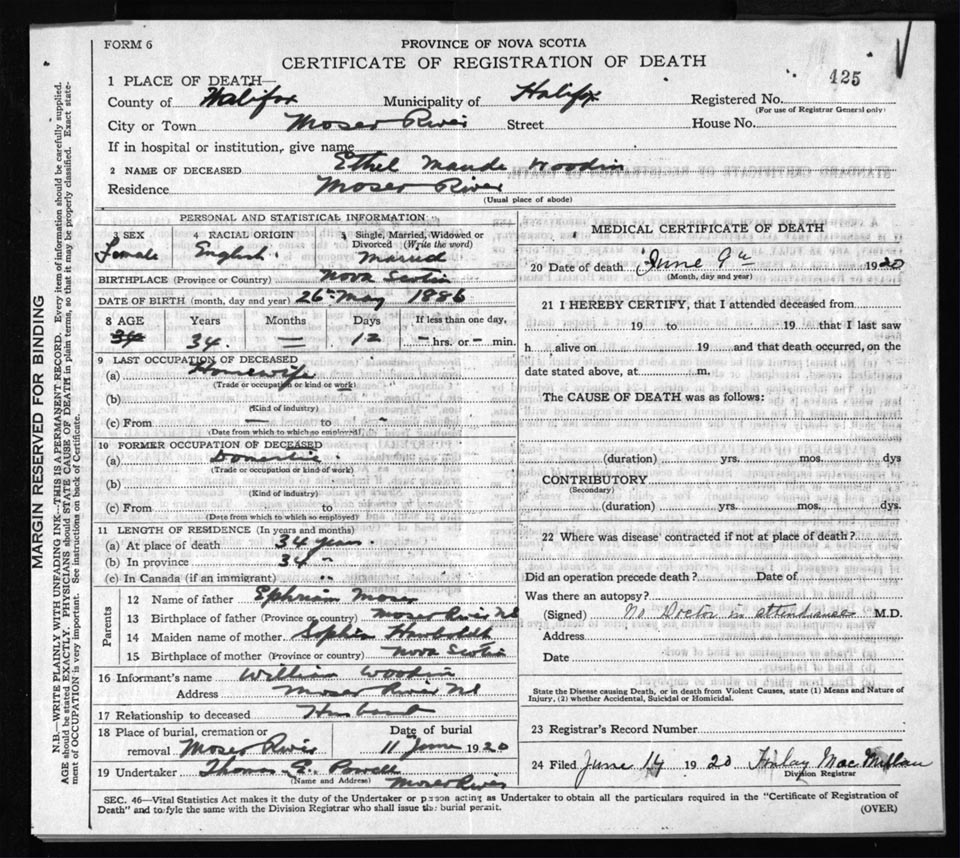 FORM 6
PROVINCE OF NOVA SCOTIA
CERTIFICATE OF REGISTRATION OF DEATH
425
1 PLACE OF DEATH—
County of Halifax Municipality of Halifax Registered No.
(For use of Registrar General only)
City or Town Moser River Street House No.
If in hospital or institution, give name
2 NAME OF DECEASED Ethel Maude Woodin
Residence Moser River
(Usual place of abode)
MARGIN RESERVED FOR BINDING
N.B.—WRITE PLAINLY WITH UNFADING INK—THIS IS A PERMANENT RECORD. Every item of information should be carefully supplied.
AGE should be stated EXACTLY. PHYSICIANS should STATE CAUSE OF DEATH in plain terms, so that it may be properly classified. Exact state-
ment of OCCUPATION is very important. See instructions on back of Certificate.
PERSONAL AND STATISTICAL INFORMATION
3 SEX
Female
4 RACIAL ORIGIN
English
5 Single, Married, Widowed or
Divorced (Write the word)
Married
BIRTHPLACE (Province or Country) Nova Scotia
DATE OF BIRTH (month, day and year) 26th May 1886
8 AGE Years Months Days If less than one day,
34 34 — 12 – hrs. or – min.
9 LAST OCCUPATION OF DECEASED
(a) Housewife
(Trade or occupation or kind or work)
(b)
(Kind of industry)
(c) From — to -
(Date from which to which so employed)
10 FORMER OCCUPATION OF DECEASED
(a) Domestic
(Trade or occupation or kind of work)
(b)
(Kind of industry)
(c) From to
(Date from which to which so employed)
11 LENGTH OF RESIDENCE (In years and months)
(a) At place of death 34 years
(b) In province 34 "
(c) In Canada (if an immigrant) "
Parents
12 Name of father Ephriam Moser
13 Birthplace of father (Province or country) Moser River NS
14 Maiden name of mother Sophia
15 Birthplace of mother (Province or country) Nova Scotia
16 Informant's name William Woodin
Address Moser River NS
17 Relationship to deceased Husband
18 Place of burial, cremation or
removal Moser River
Date of burial
11 June 1920
19 Undertaker Thomas E. Powell
(Name and Address) Moser River
MEDICAL CERTIFICATE OF DEATH
20 Date of death June 9th 1920
(Month, day and year)
21 I HEREBY CERTIFY, that I attended deceased from
19 to 19 that I last saw
h alive on 19 and that death occurred, on the
date stated above, at m.
The CAUSE OF DEATH was as follows:
(duration) yrs. mos. dys
CONTRIBUTORY
(Secondary)
(duration) yrs. mos. dys.
22 Where was disease contracted if not at place of death?
Did an operation precede death? Date of
Was there an autopsy?
(Signed) No Doctor in attendance M.D.
Address
Date
State the Disease causing Death, or in death from Violent Causes, state (1) Means and Nature of
Injury, (2) whether Accidental, Suicidal or Homicidal.
23 Registrar's Record Number
24 Filed June 14 1920 Finlay MacMillan
Division Registrar
SEC. 46—Vital Statistics Act makes it the duty of the Undertaker or person acting as Undertaker to obtain all the particulars required in the "Certificate of Registration of
Death" and to file the same with the Division Registrar who shall issue the burial permit. (OVER)